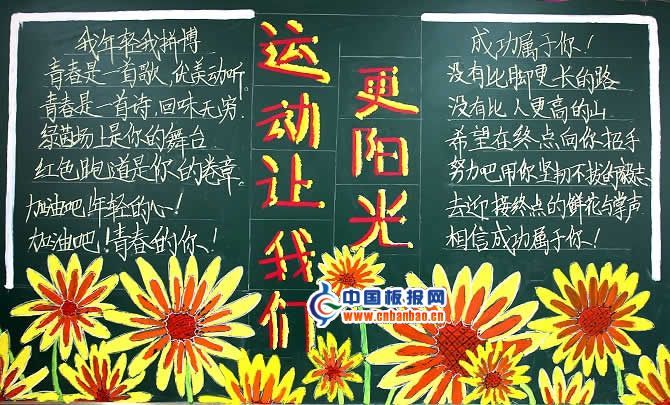 我年轻我拼博
青春是一首歌,优美动听
青春是一首诗,回味无穷
绿茵场上是你的舞台
红色跑道是你的卷章
加油吧!年轻的心!
加油吧!青春的你!
运动让我们
更阳光
成功属于你!
没有比脚更长的路
没有比人更高的山
希望在终点向你招手
努力吧用你坚韧不拔的意志
去迎接终点的鲜花与掌声
相信成功属于你!
中国板报网
www.cnbanbao.cn